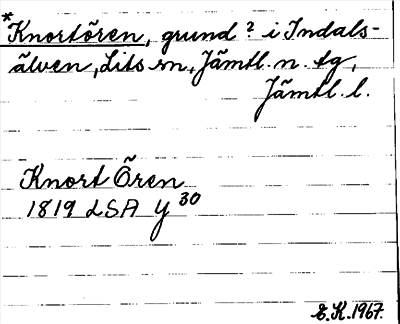 *Knortören, grund ? i Indals-
älven, Lits sn, Jämtl. n. tg,
Jämtl. l.
Knort Ören
1819 LSA Y 30
E.K. 1967.